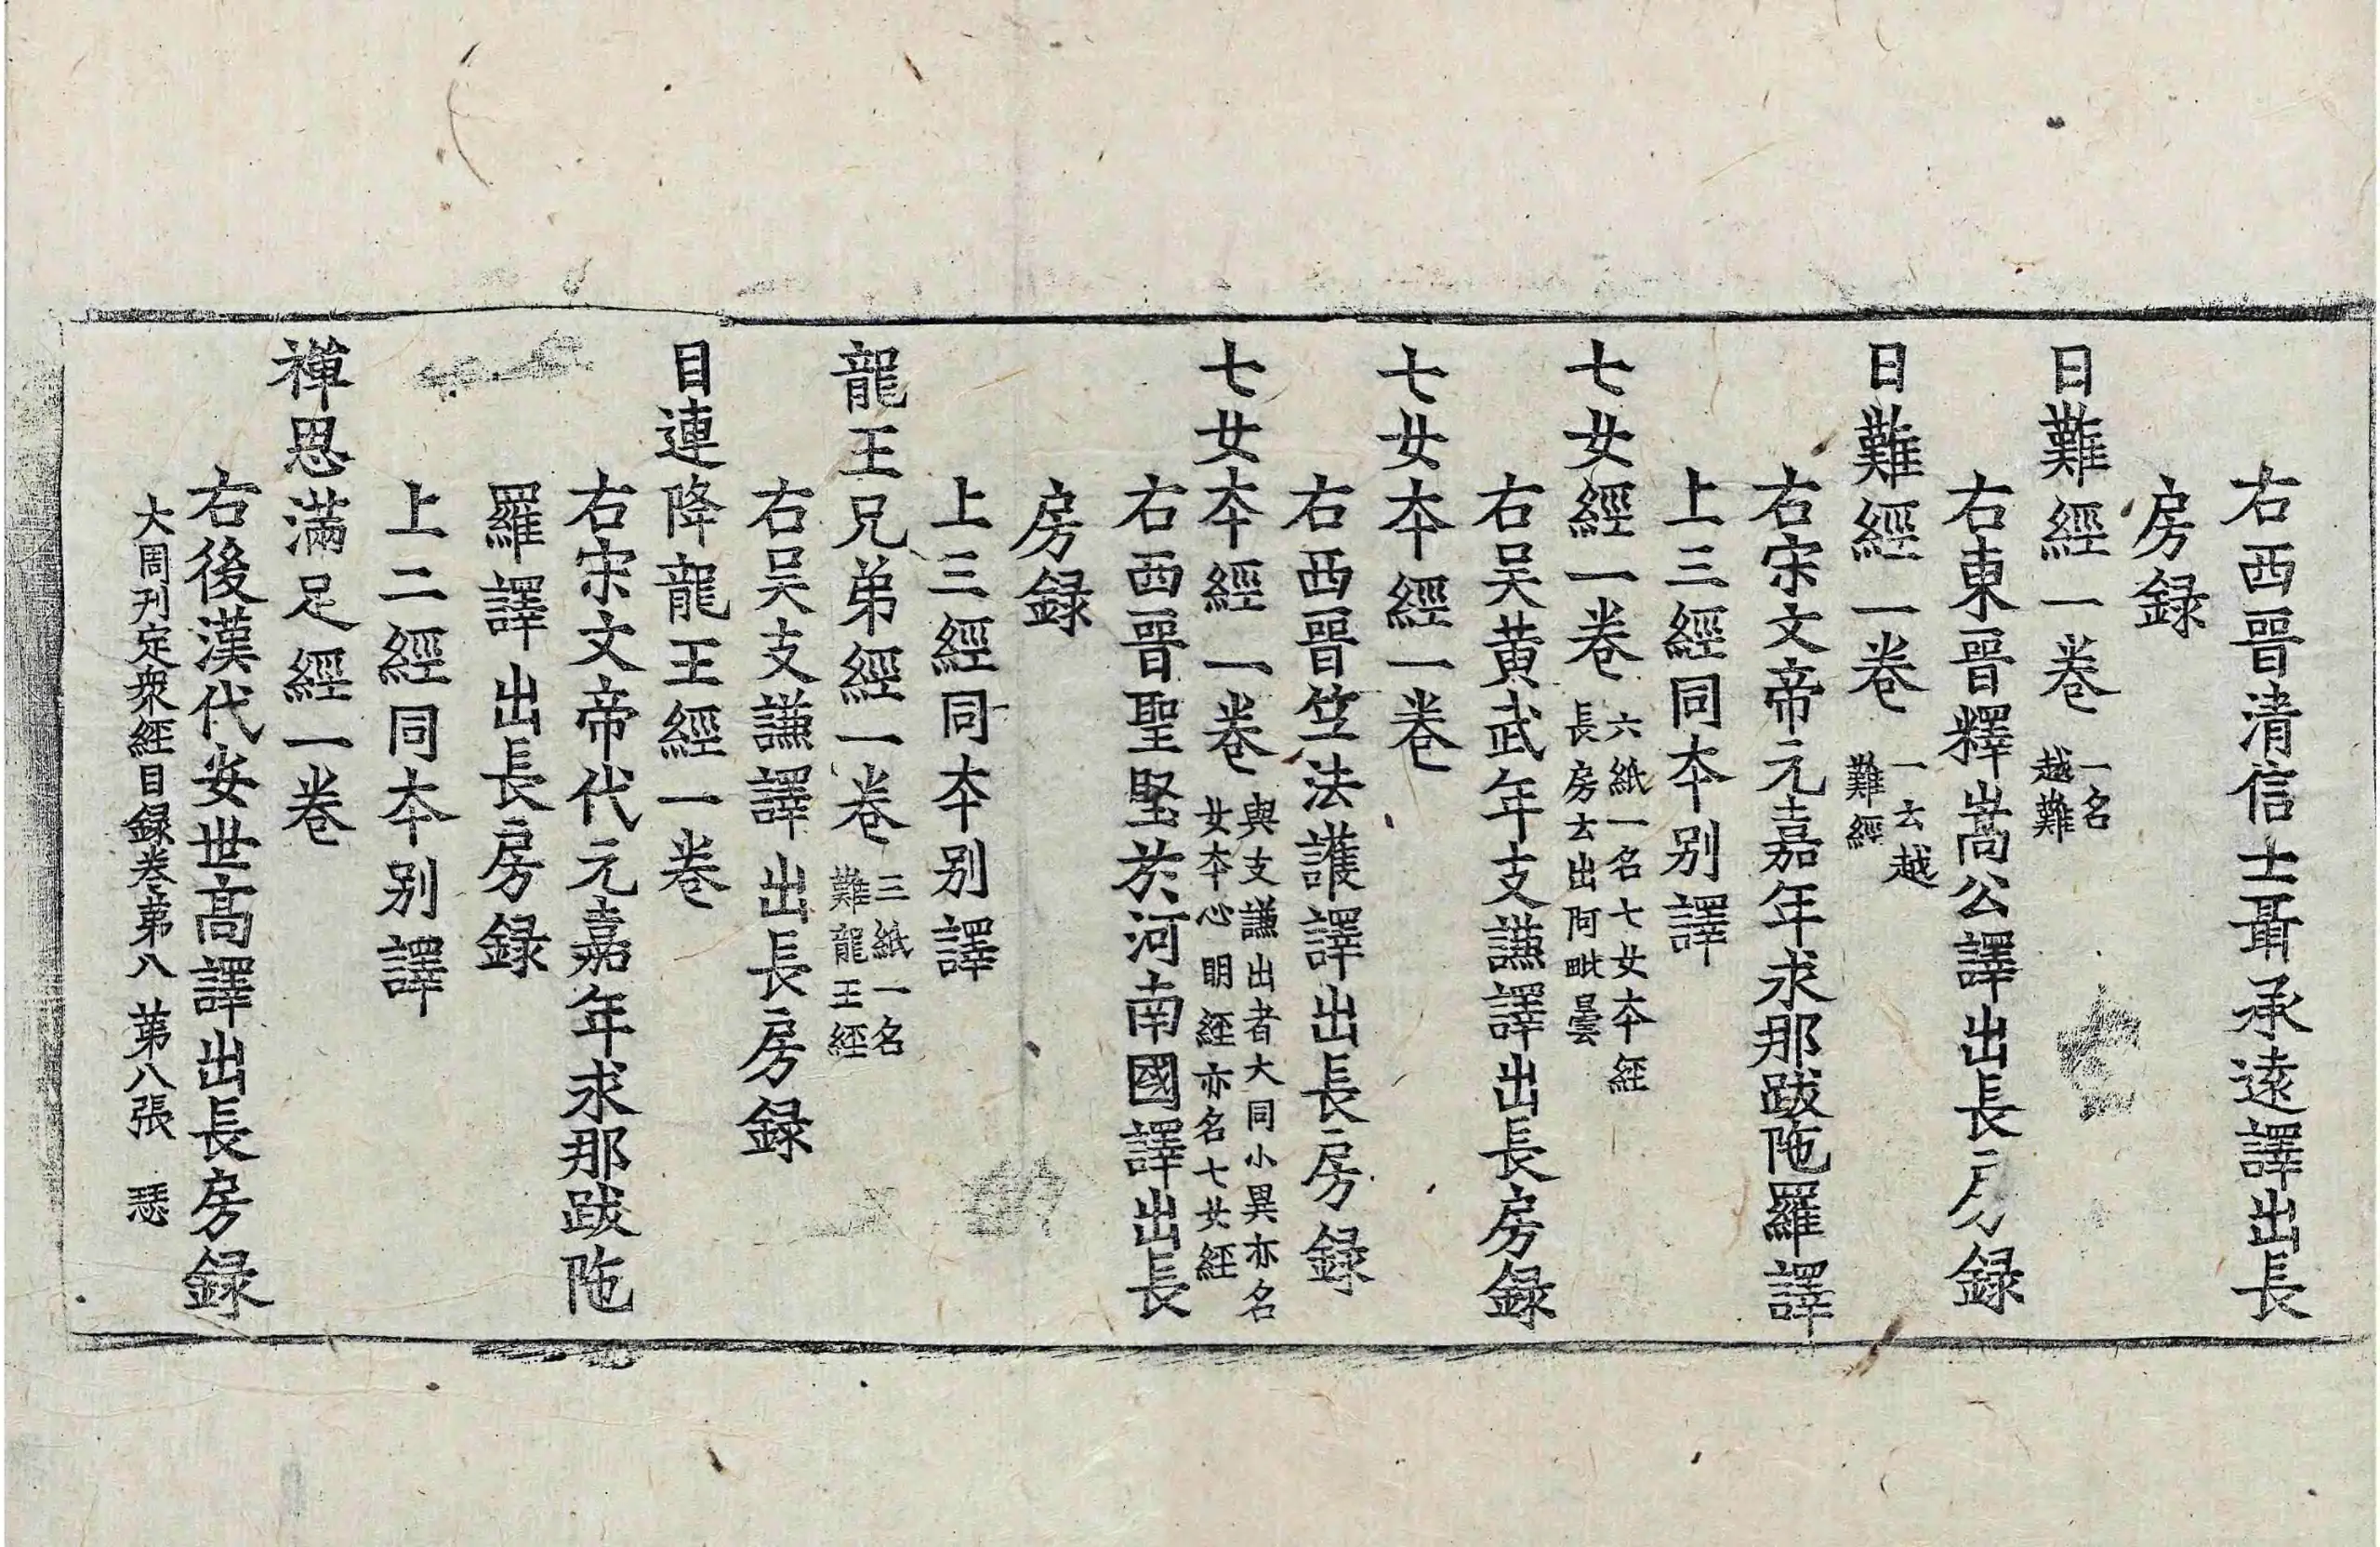 右西晉清信士聶承遠譯出長
房録
日難經一卷 一名越難
右東晉釋嵩公譯出長房録
日難經一卷 一云越難經
右宋文帝元嘉年求那跋陁羅譯
上三經同夲别譯
七女經一卷 六紙一名七女夲經長房云出阿毗曇
右吴黄武年支謙譯出長房録
七女夲經一卷
右西晉笁法護譯出長房録
七女夲經一卷 與支謙出者大同小異亦名女夲心明経亦名七女経
右西晉聖堅於河南國譯出長
房録
上三經同夲别譯
龍王兄弟經一卷 三紙一名難龍王経
右吴支謙譯出長房録
目連降龍王經一卷
右宋文帝代元嘉年求那跋陁
羅譯出長房録
上二經同夲别譯
禪思滿足經一卷
右後漢代安世髙譯出長房録
大周刋定衆經目録卷第八 第八張 瑟